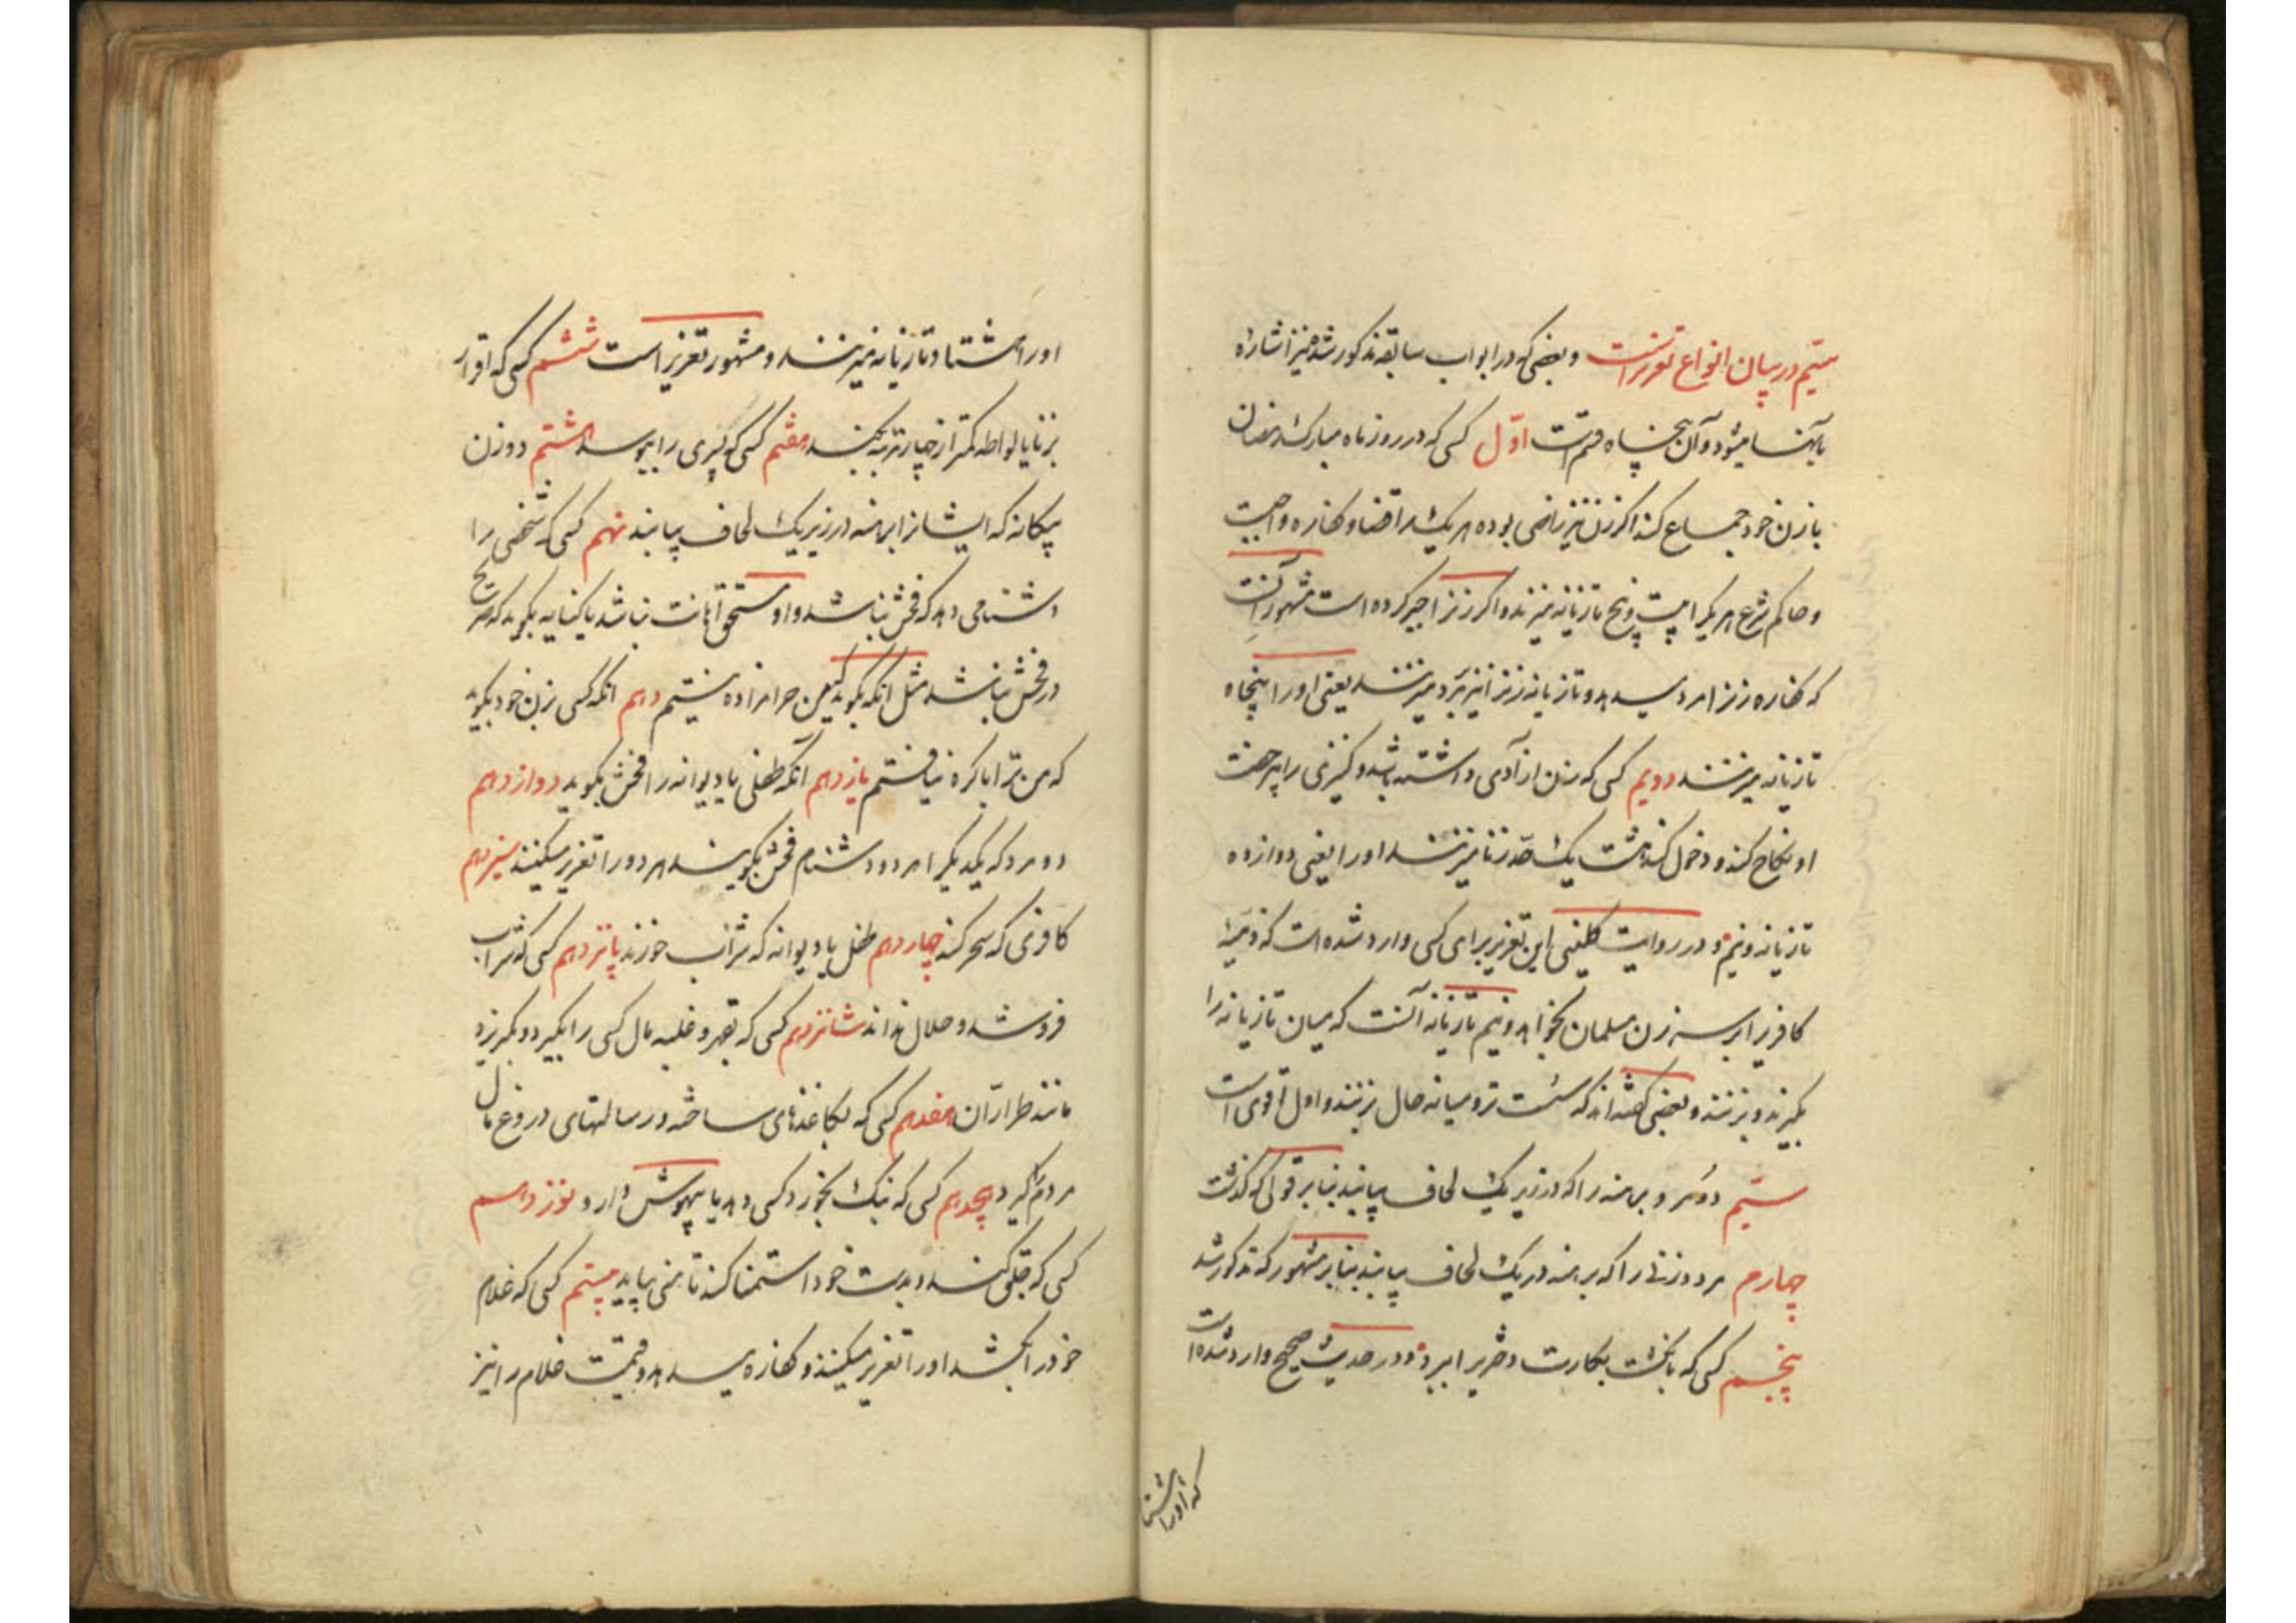 سیّم در بیان انواع تعزیراتست و بعضی که در ابواب سابقه مذکور شد نیز اشاره
بآنها میشود و آن پنجاه قسم است اوّل کسی که در روز ماه مبارک رمضان
با زن خود جماع کند اگر زن نیز راضی بوده هر یک را قضا و کفاره واجبست
و حاکم شرع هر یک را بیست و پنج تازیانه میزند و اگر زنرا جبر کرده است مشهور آنست
که کفاره زنرا مرد میدهد و تازیانه زنرا نیز بمرد میزنند یعنی او را پنجاه
تازیانه میزنند دویم کسی که زن آزادی داشته باشد و کنیزی را بی رخصت
او نکاح کند و دخول کند هشت یک حدّ زنا میزنند او را یعنی دوازده
تازیانه و نیم و در روایت کلینی این تعزیر برای کسی وارد شده است که ذمیّه
کافریرا بر سر زن مسلمان بخواهد و نیم تازیانه آنست که میان تازیانه را
بگیرند و بزنند و بعضی گفته‌اند که سست تر و میانه حال بزنند و اول اقوی است
سیّم دو مرد برهنه را که در زیر یک لحاف بیابند بنابر قولی که گذشت
چهارم مرد و زنی را که برهنه در یک لحاف بیابند بنابر مشهور که مذکور شد
پنجم کسی که بانگشت بکارت دختریرا ببرد و در حدیث صحیح وارد شده است
که او را هشتا
او را هشتاد تازیانه میزنند و مشهور تعزیر است ششم کسی که اقرار
بزنا یا لواطه کمتر از چهار مرتبه بکند هفتم کسی که پسری را ببوسد هشتم دو زن
بیگانه که ایشانرا برهنه در زیر یک لحاف بیابند نهم کسی که شخصی را
دشنامی دهد که فحش نباشد و او مستحق اهانت نباشد یا کنایه بگوید که صریح
در فحش نباشد مثل آنکه بگوید که من حرامزاده نیستم دهم آنکه کسی بزن خود بگوید
که من ترا باکره نیافتم یازدهم آنکه طفلی یا دیوانه را فحش بگوید دوازدهم
دو مرد که یکدیگر را هر دو دشنام فحش بگویند هر دو را تعزیر میکنند سیزدهم
کافری که سحر کند چهاردهم طفل یا دیوانه که شراب خورند پانزدهم کسی که شراب
فروشد و حلال نداند شانزدهم کسی که بقهر و غلبه مال کسی را بگیرد و بگریزد
مانند طرّاران هفدهم کسی که بکاغذهای ساخته و رسالتهای دروغ مال
مردم گیرد هیجدهم کسی که بنگ بخورد کسی دهد یا بیهوش دارو نوزدهم
کسی که جلق کند و بدست خود استمنا کند تا منی بیاید بیستم کسی که غلام
خود را بکشد او را تعزیر میکنند و کفاره میدهد و قیمت غلام را نیز